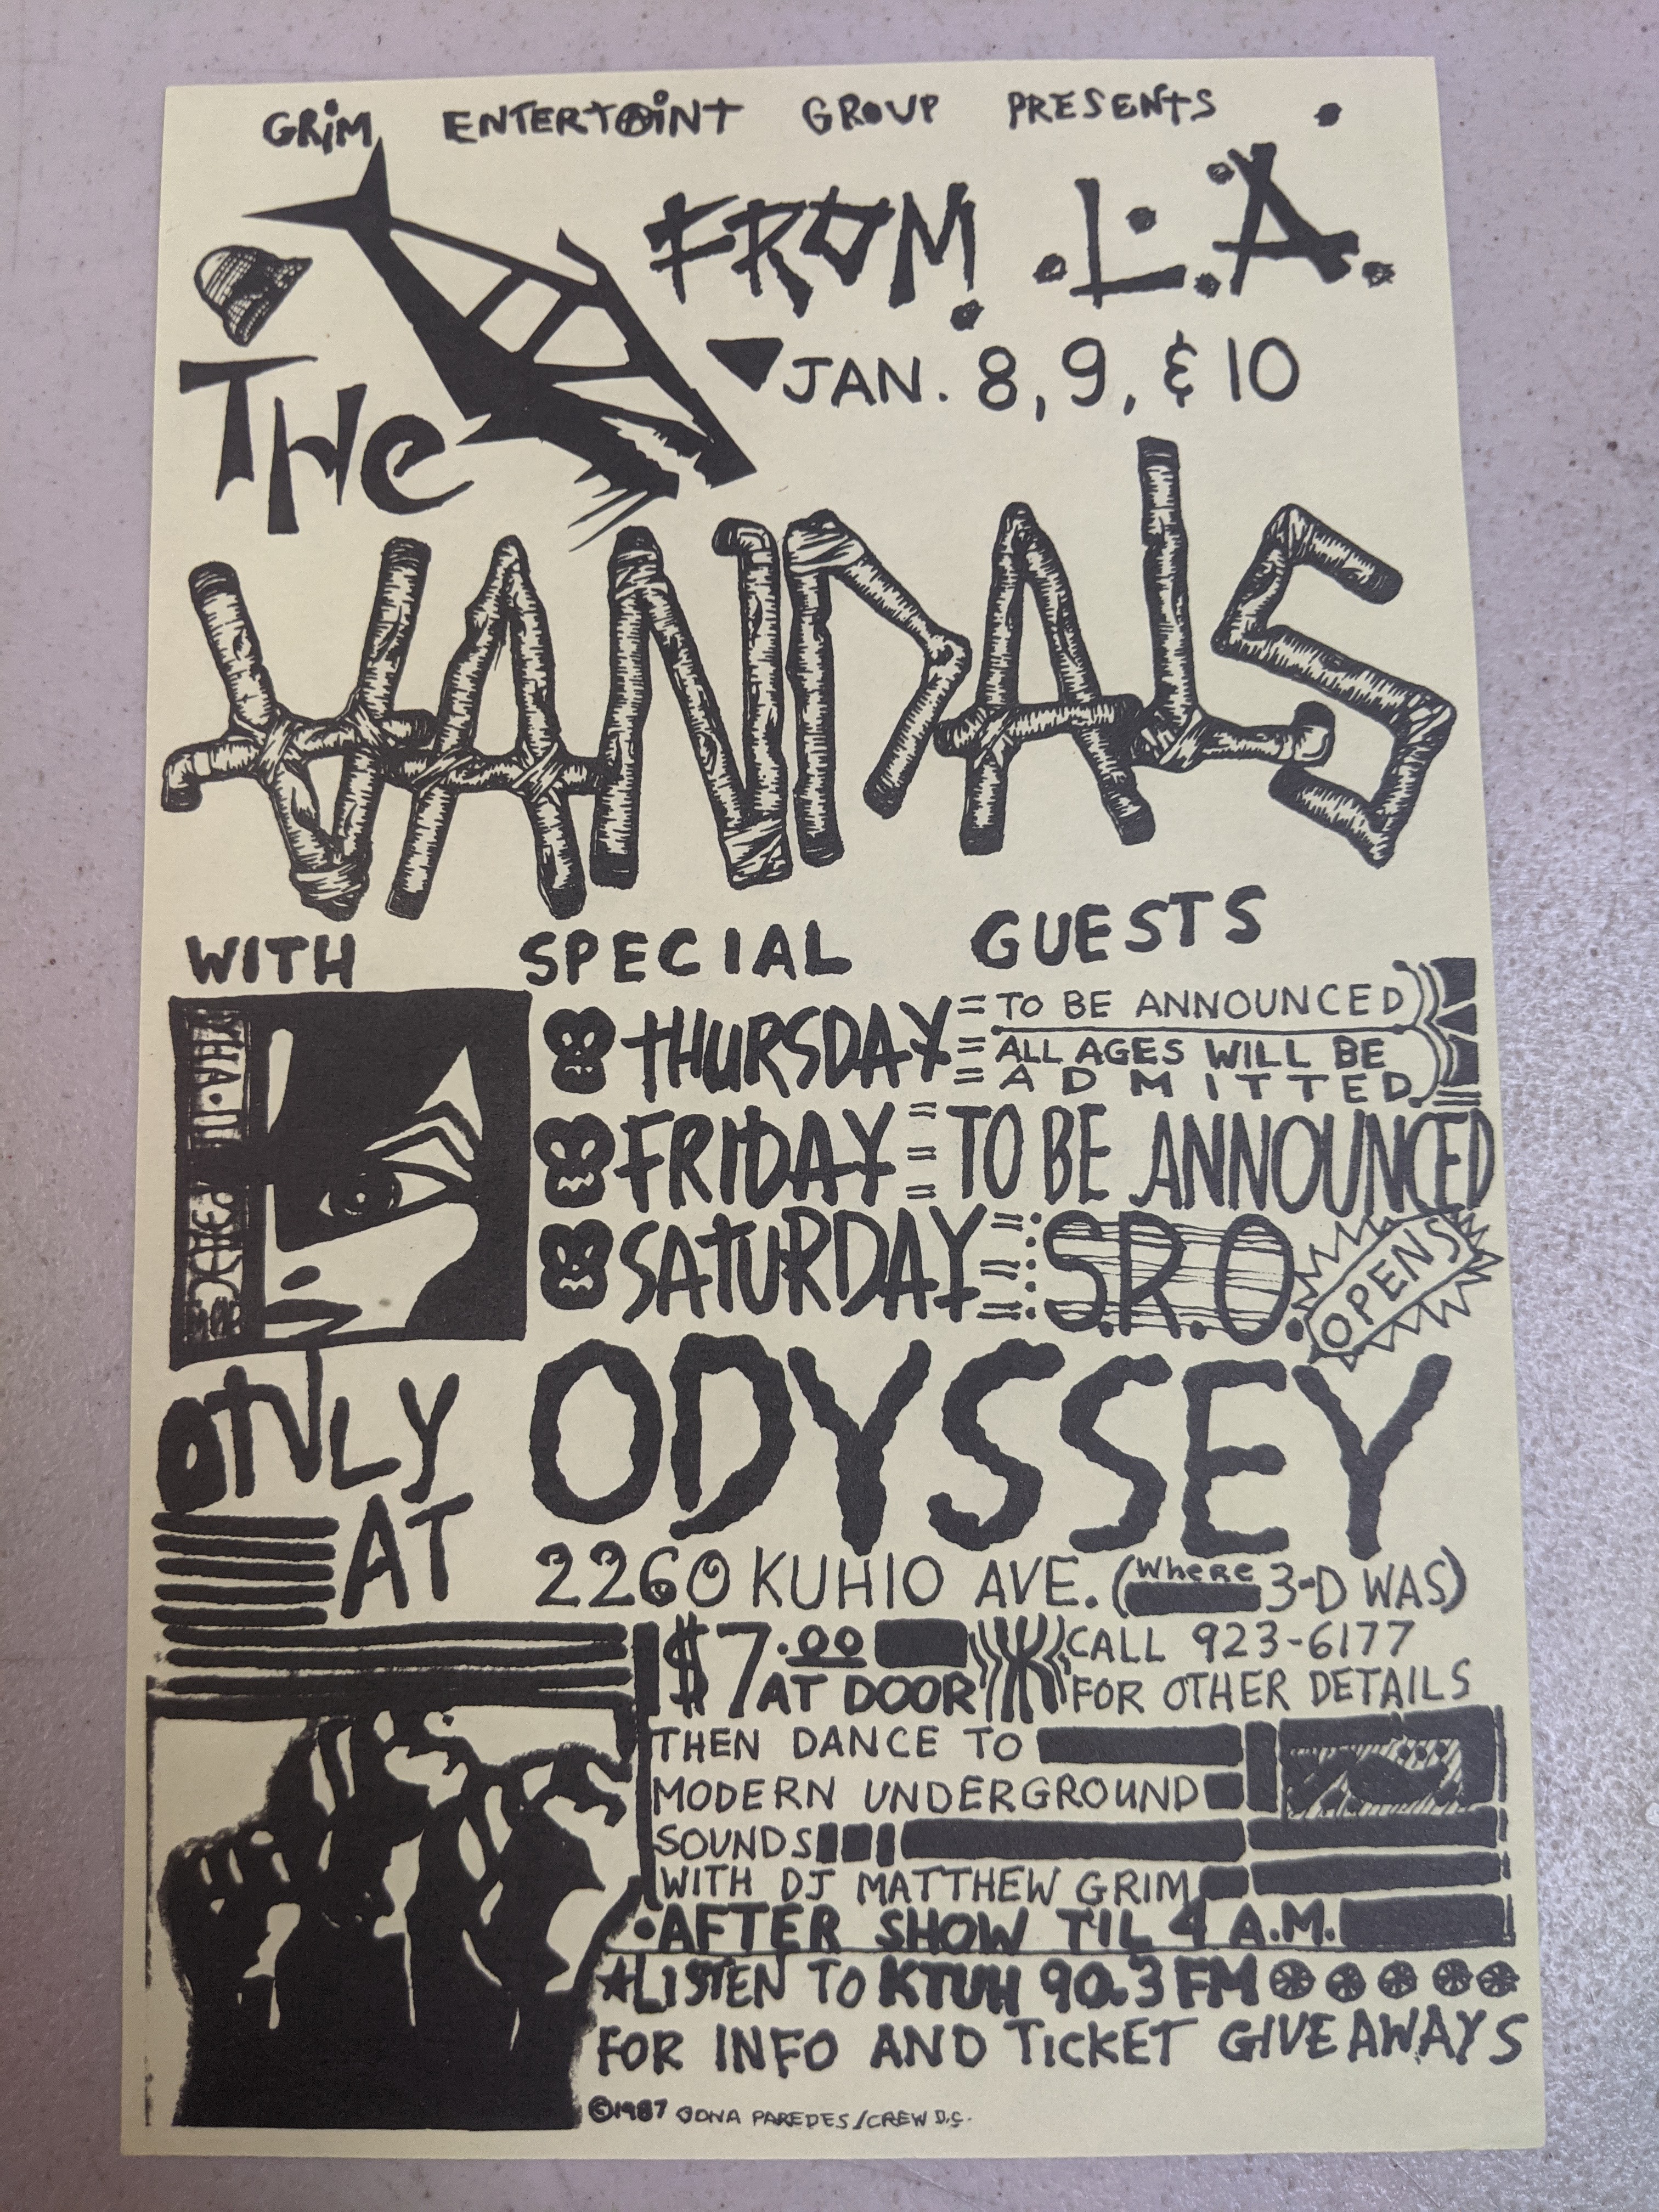 GRiM ENTERTAiNT GROUP PRESENTS
FROM L.A.
JAN. 8, 9, & 10
THe
VANDALS
WITH SPECIAL GUESTS
THURSDAY = TO BE ANNOUNCED
ALL AGES WILL BE
ADMITTED
FRIDAY = TO BE ANNOUNCED
SATURDAY = S.R.O. OPENS
ONLY
AT
ODYSSEY
2260 KUHIO AVE. (WheRe 3-D WAS)
$7.00
AT DOOR
CALL 923-6177
FOR OTHER DETAILS
THEN DANCE TO
MODERN UNDERGROUND
SOUNDS
WITH DJ MATTHEW GRIM
•AFTER SHOW TIL 4 A.M.
★LISTEN TO KTUH 90.3 FM
FOR INFO AND TiCKET GIVE AWAYS
©1987 OONA PAREDES/CREW D.C.